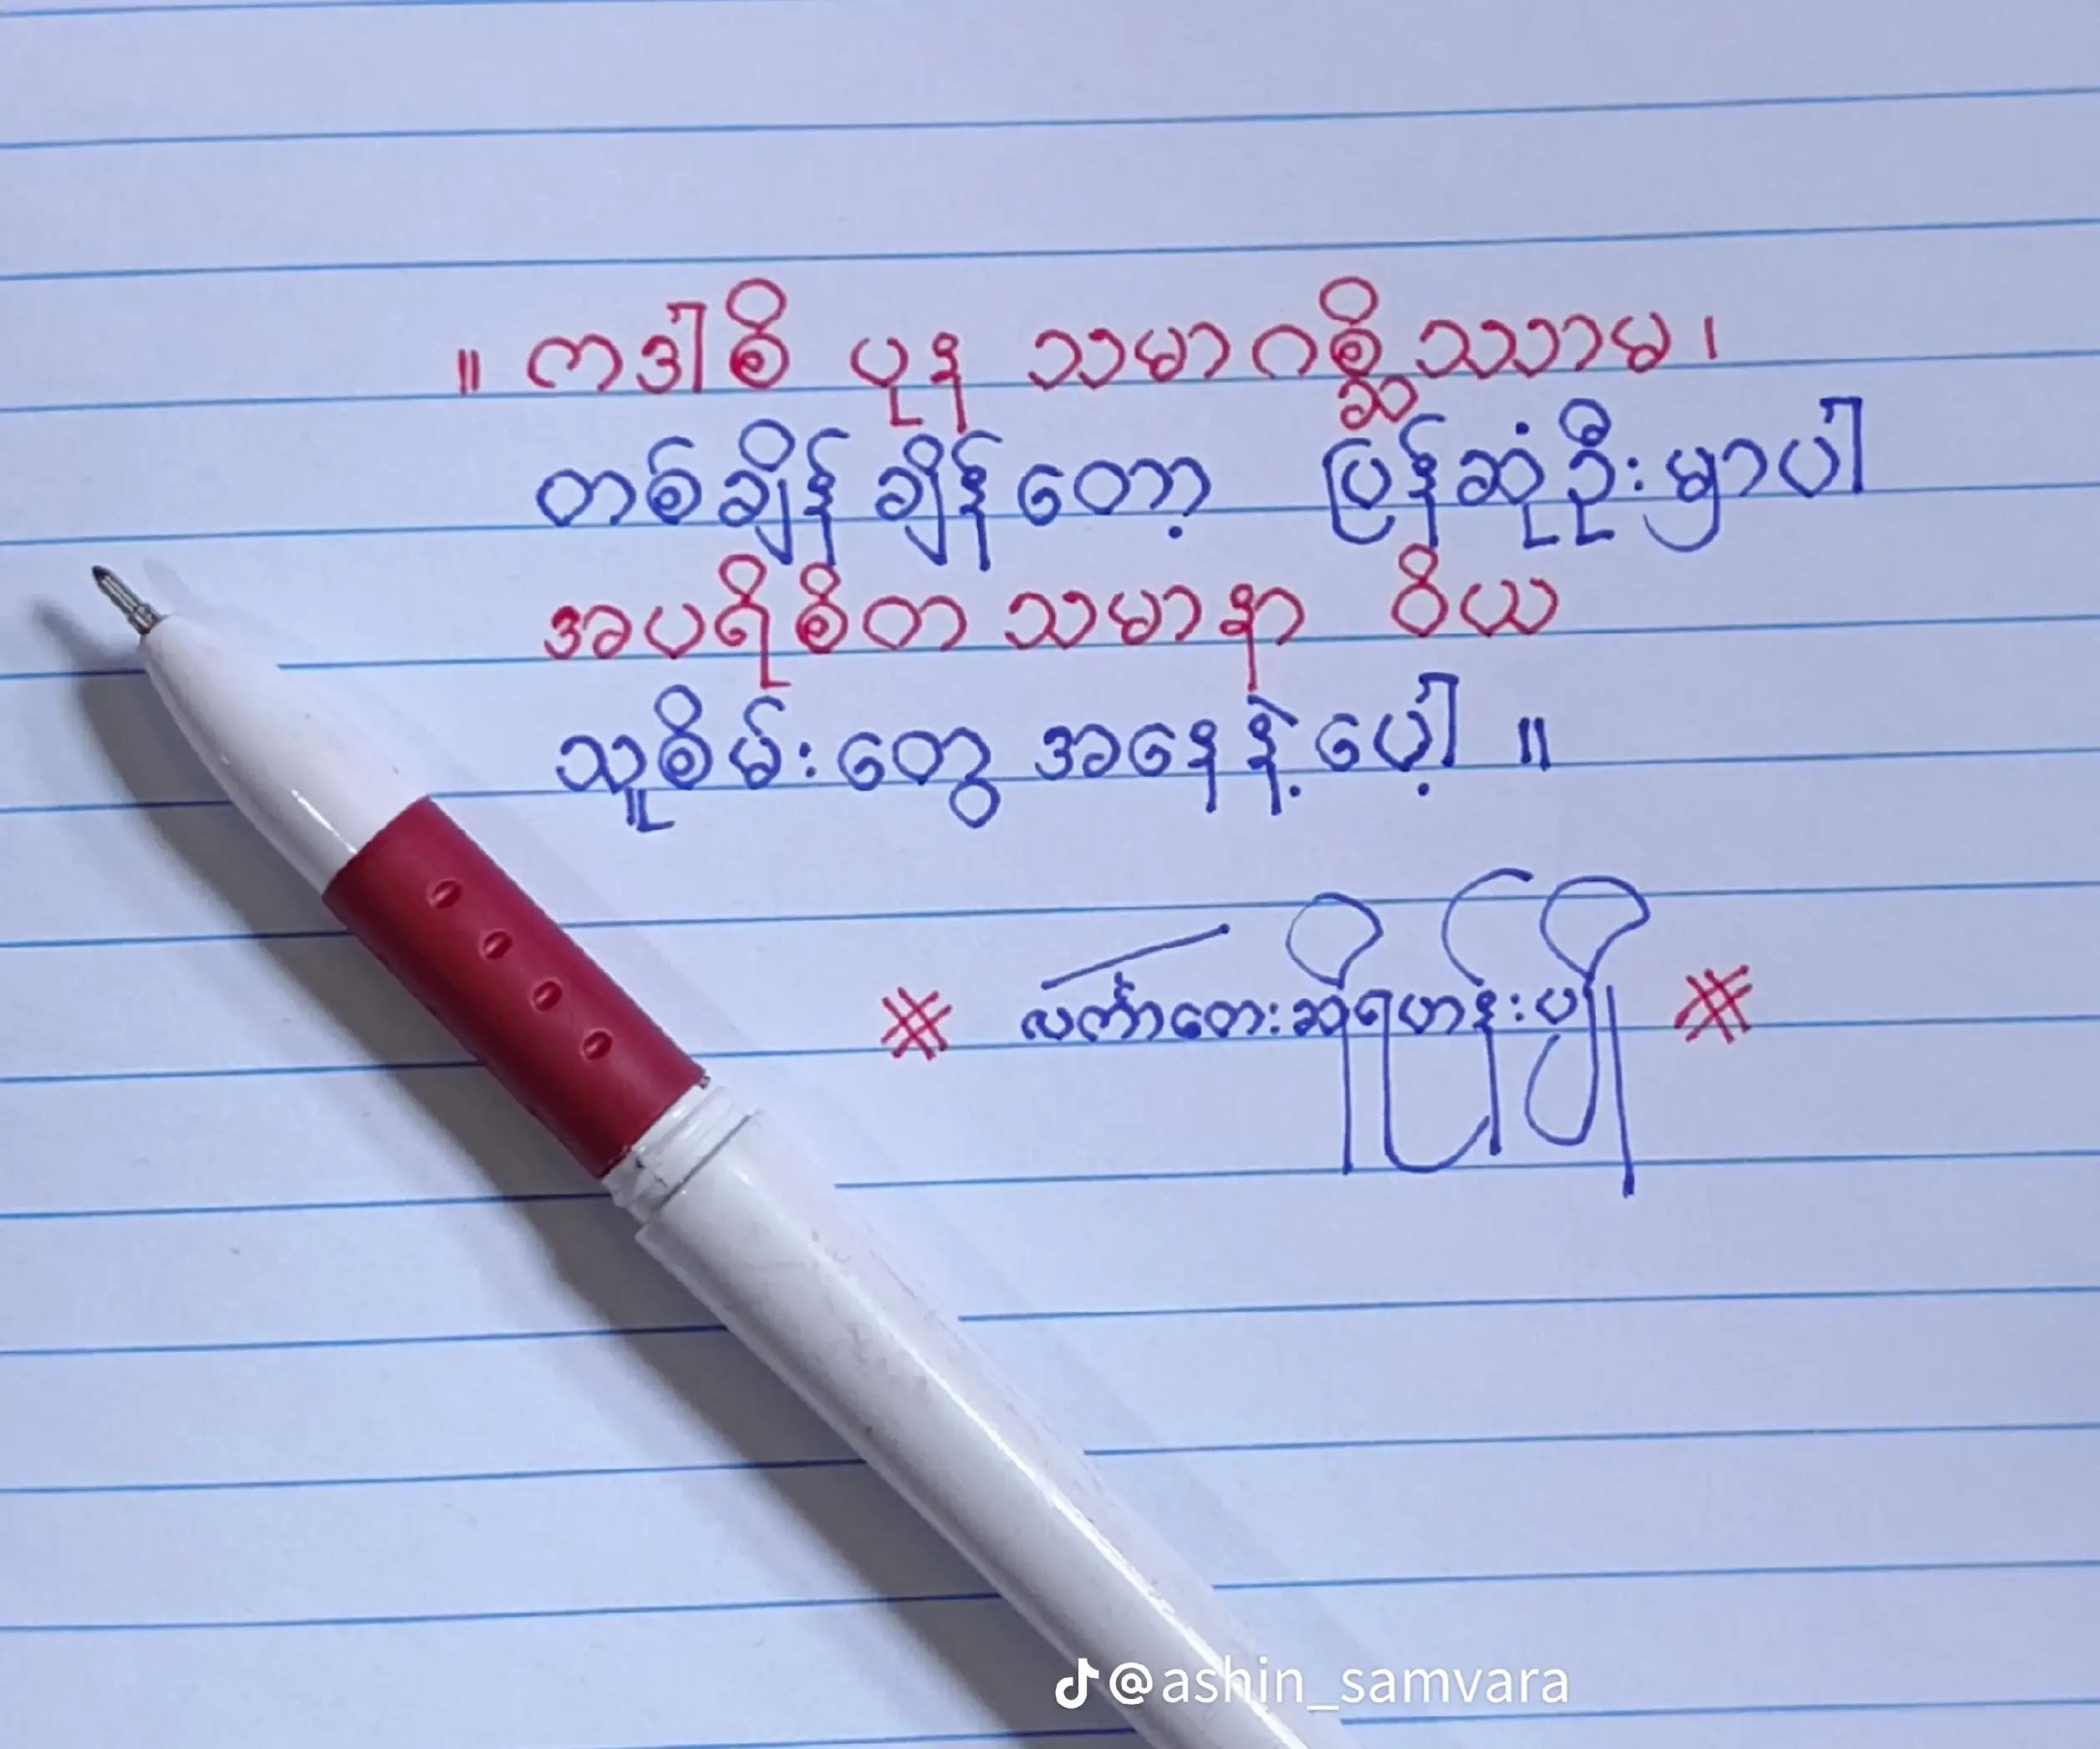 ॥ ကဒါစိ ပုန သမာဂစ္ဆိဿာမ ၊
တစ်ချိန်ချိန်တော့ ပြန်ဆုံဦးမှာပါ
အပရိစိတ သမာနာ ဝိယ
သူစိမ်းတွေ အနေနဲ့ပေါ့ ။
※ လင်္ကာတေးဆိုရဟန်းပျို ※
@ashin_samvara